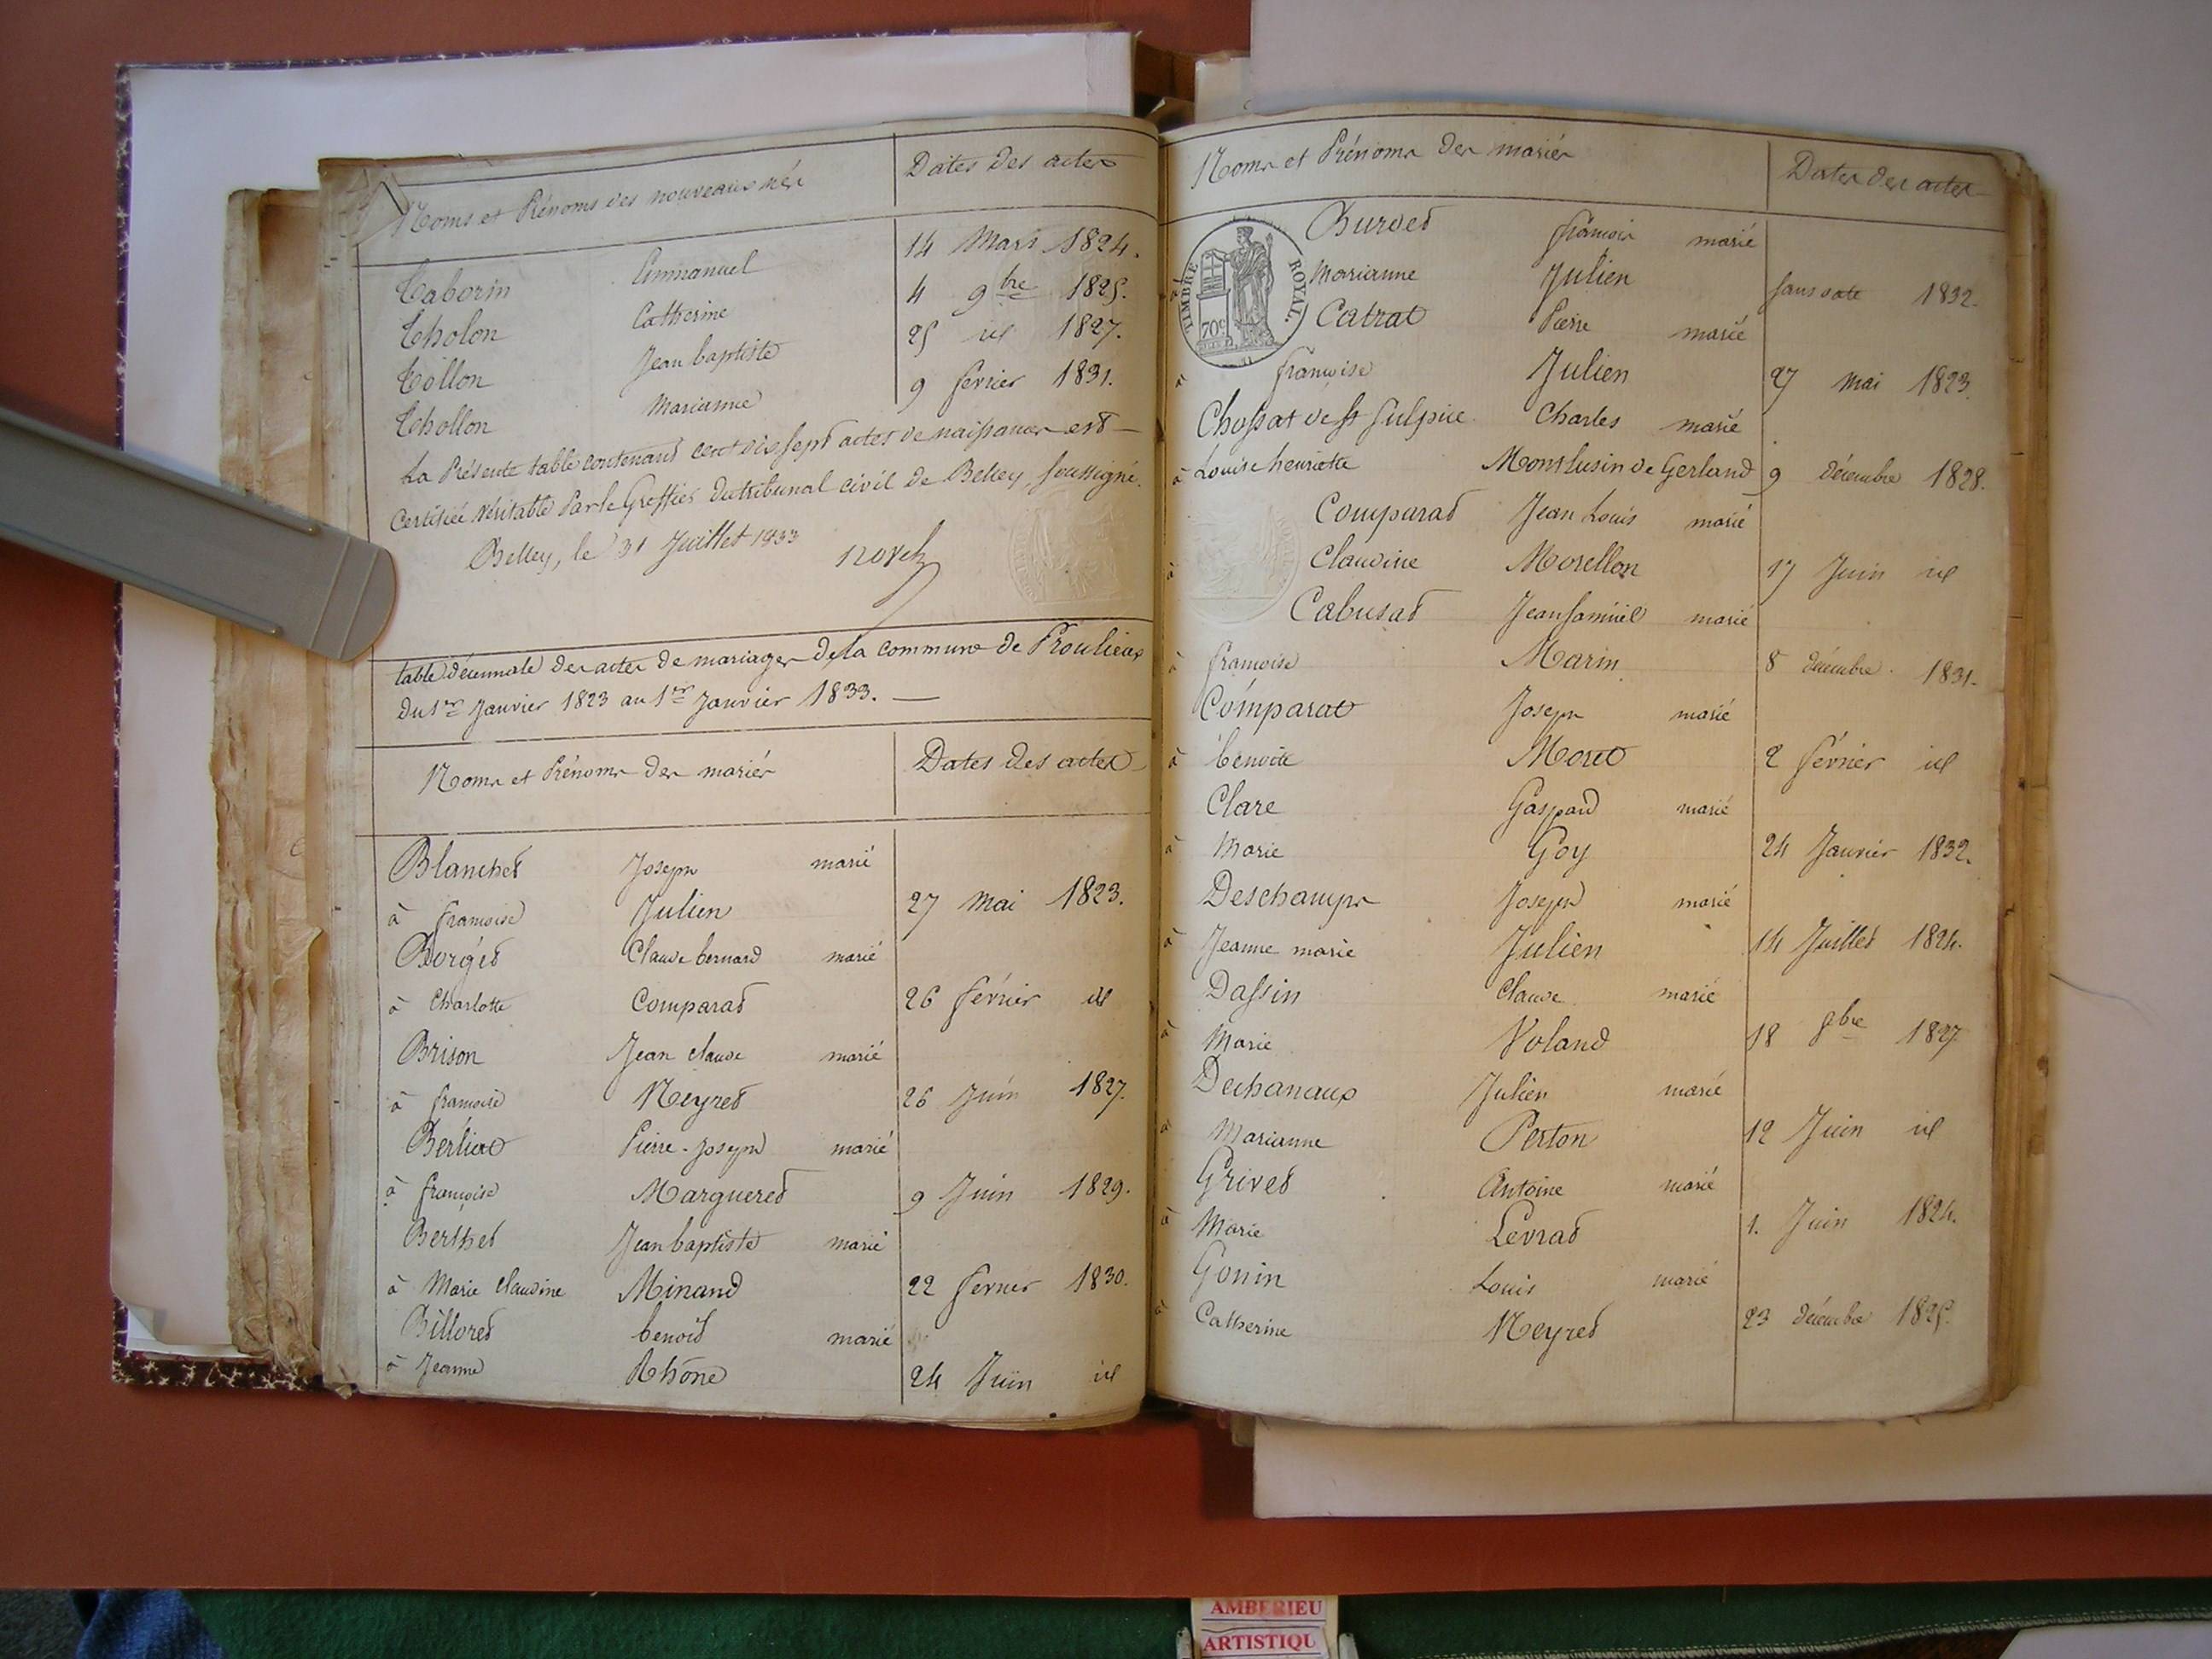 Noms et Prénoms des nouveaux nés Dates des actes
Taborin Emmanuel 14 Mars 1824.
Tholon Catherine 4 9bre 1825.
Tollon Jean baptiste 25 id 1827.
Thollon Marianne 9 fevrier 1831.
La Présente table contenant cent dix sept actes de naissances est
Certifiée Véritable Par le Greffier du tribunal civil de Belley, soussigné.
Belley, le 31 Juillet 1833
table décennale des actes de mariages de la commune de Proulieu
du 1er Janvier 1823 au 1er Janvier 1833. —
Noms et Prénoms des mariés Dates des actes
Blanchet Joseph marié
à françoise Julien 27 Mai 1823.
Borget Claude bernard marié
à Charlotte Comparat 26 février id
Brison Jean claude marié
à françoise Neyret 26 Juin 1827.
Berliat Pierre-Joseph marié
à françoise Margueret 9 Juin 1829.
Berthet Jean baptiste marié
à Marie Claudine Minand 22 fevrier 1830.
Billoret benoit marié
à Jeanne Rhône 24 Juin id
Noms et Prénoms des mariés Dates des actes
TIMBRE ROYAL.
70c
Burdet françois marié
à Marianne Julien sans date 1832.
Catrat Pierre marié
à françoise Julien 27 Mai 1823.
Chossat de St Sulpice Charles marié
à Louise henriette Montlusin de Gerland 9 décembre 1828.
Comparat Jean Louis marié
à Claudine Morellon 17 Juin id
Cabusat Jean Samuel marié
à françoise Marin 8 décembre 1831.
Comparat Joseph marié
à benoite Moret 2 février id
Clare Gaspard marié
à Marie Goy 24 Janvier 1832.
Deschamps Joseph marié
à Jeanne marie Julien 14 Juillet 1824.
Dassin Claude marié
à Marie Voland 18 9bre 1827
Dechanaux Julien marié
à Marianne Perton 12 Juin id
Grivet Antoine marié
à Marie Levrat 1. Juin 1824.
Gonin Louis marié
à Catherine Neyret 23 décembre 1825.
AMBERIEU
ARTISTIQU